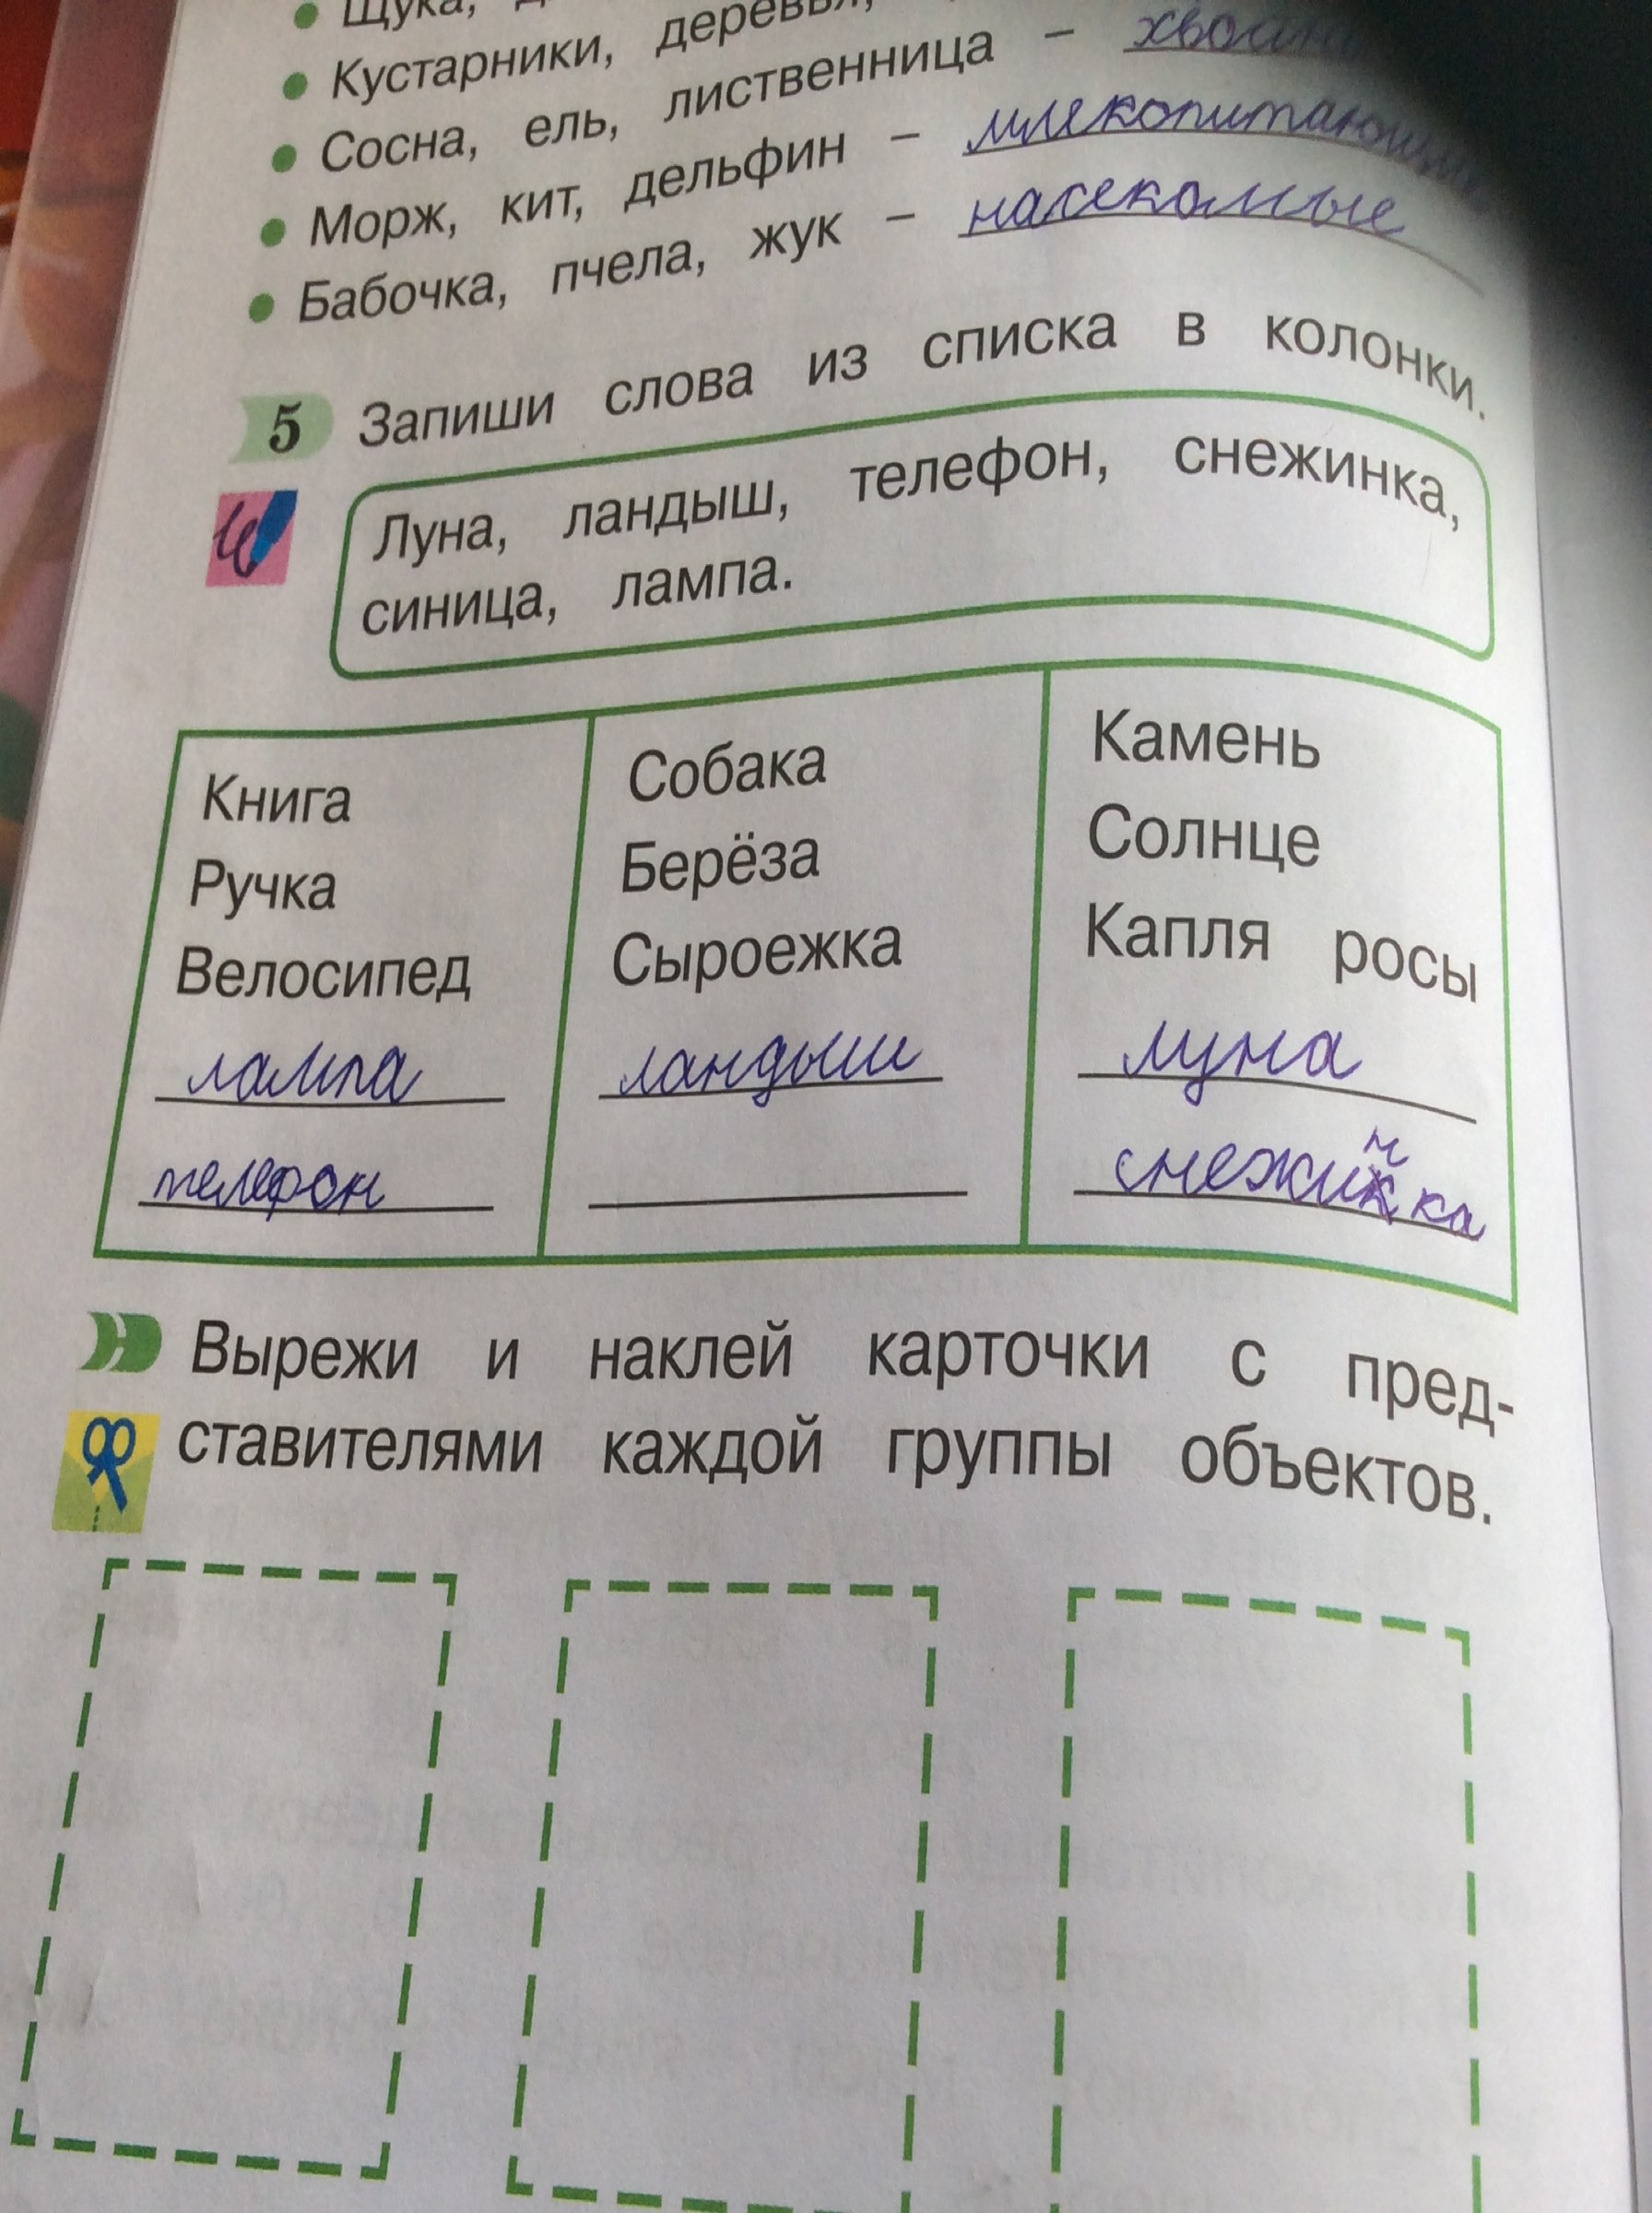 Щука,
Кустарники, деревья,
Сосна, ель, лиственница –
Морж, кит, дельфин – млекопитающи
Бабочка, пчела, жук – насекомые
5 Запиши слова из списка в колонки.
Луна, ландыш, телефон, снежинка,
синица, лампа.
Книга
Ручка
Велосипед
лампа
телефон
Собака
Берёза
Сыроежка
ландыш
Камень
Солнце
Капля росы
луна
снежинка
Вырежи и наклей карточки с пред-
ставителями каждой группы объектов.